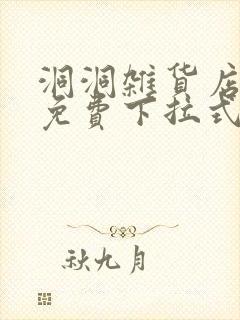 洞洞雑貨店
免費下拉式
秋九月